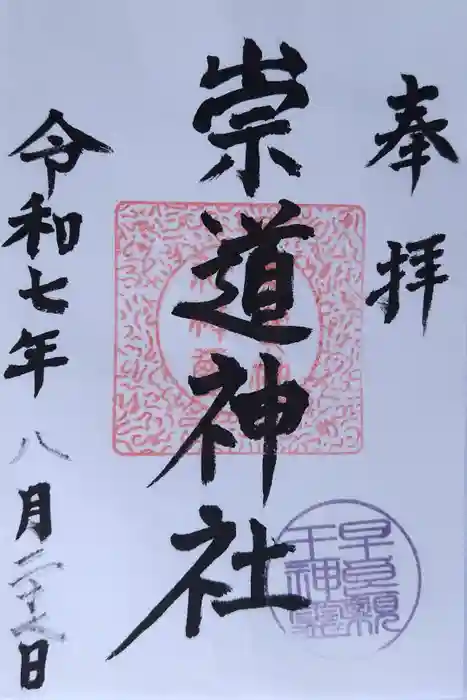 奉拝
崇道神社
令和七年八月二十八日